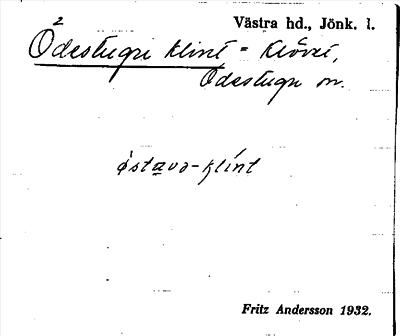 Västra hd., Jönk. l.
2
Ödestugu klint = Klövet,
Ödestugu sn.
östavo-klint
Fritz Andersson 1932.